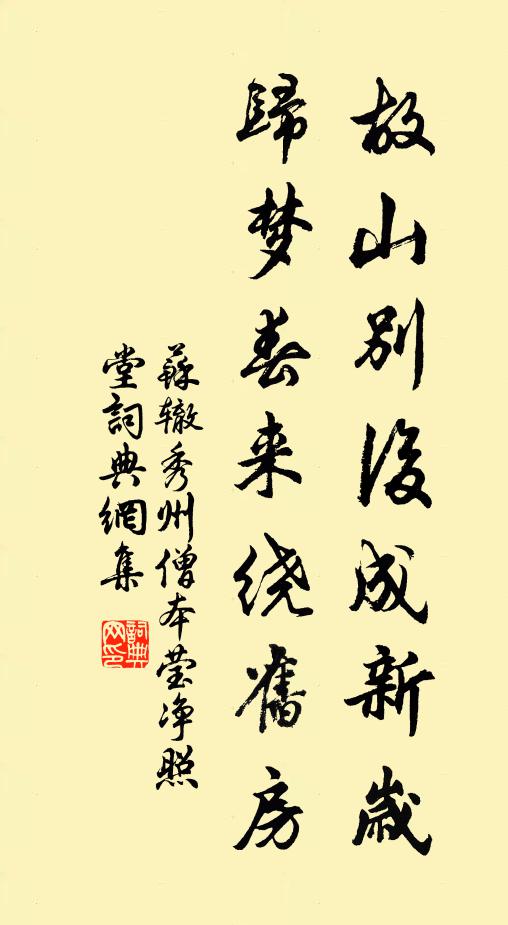 故山别後成新歲
歸梦春来绕舊房
蘇辙秀州僧本莹净照
堂詞典網集
詞典
网印